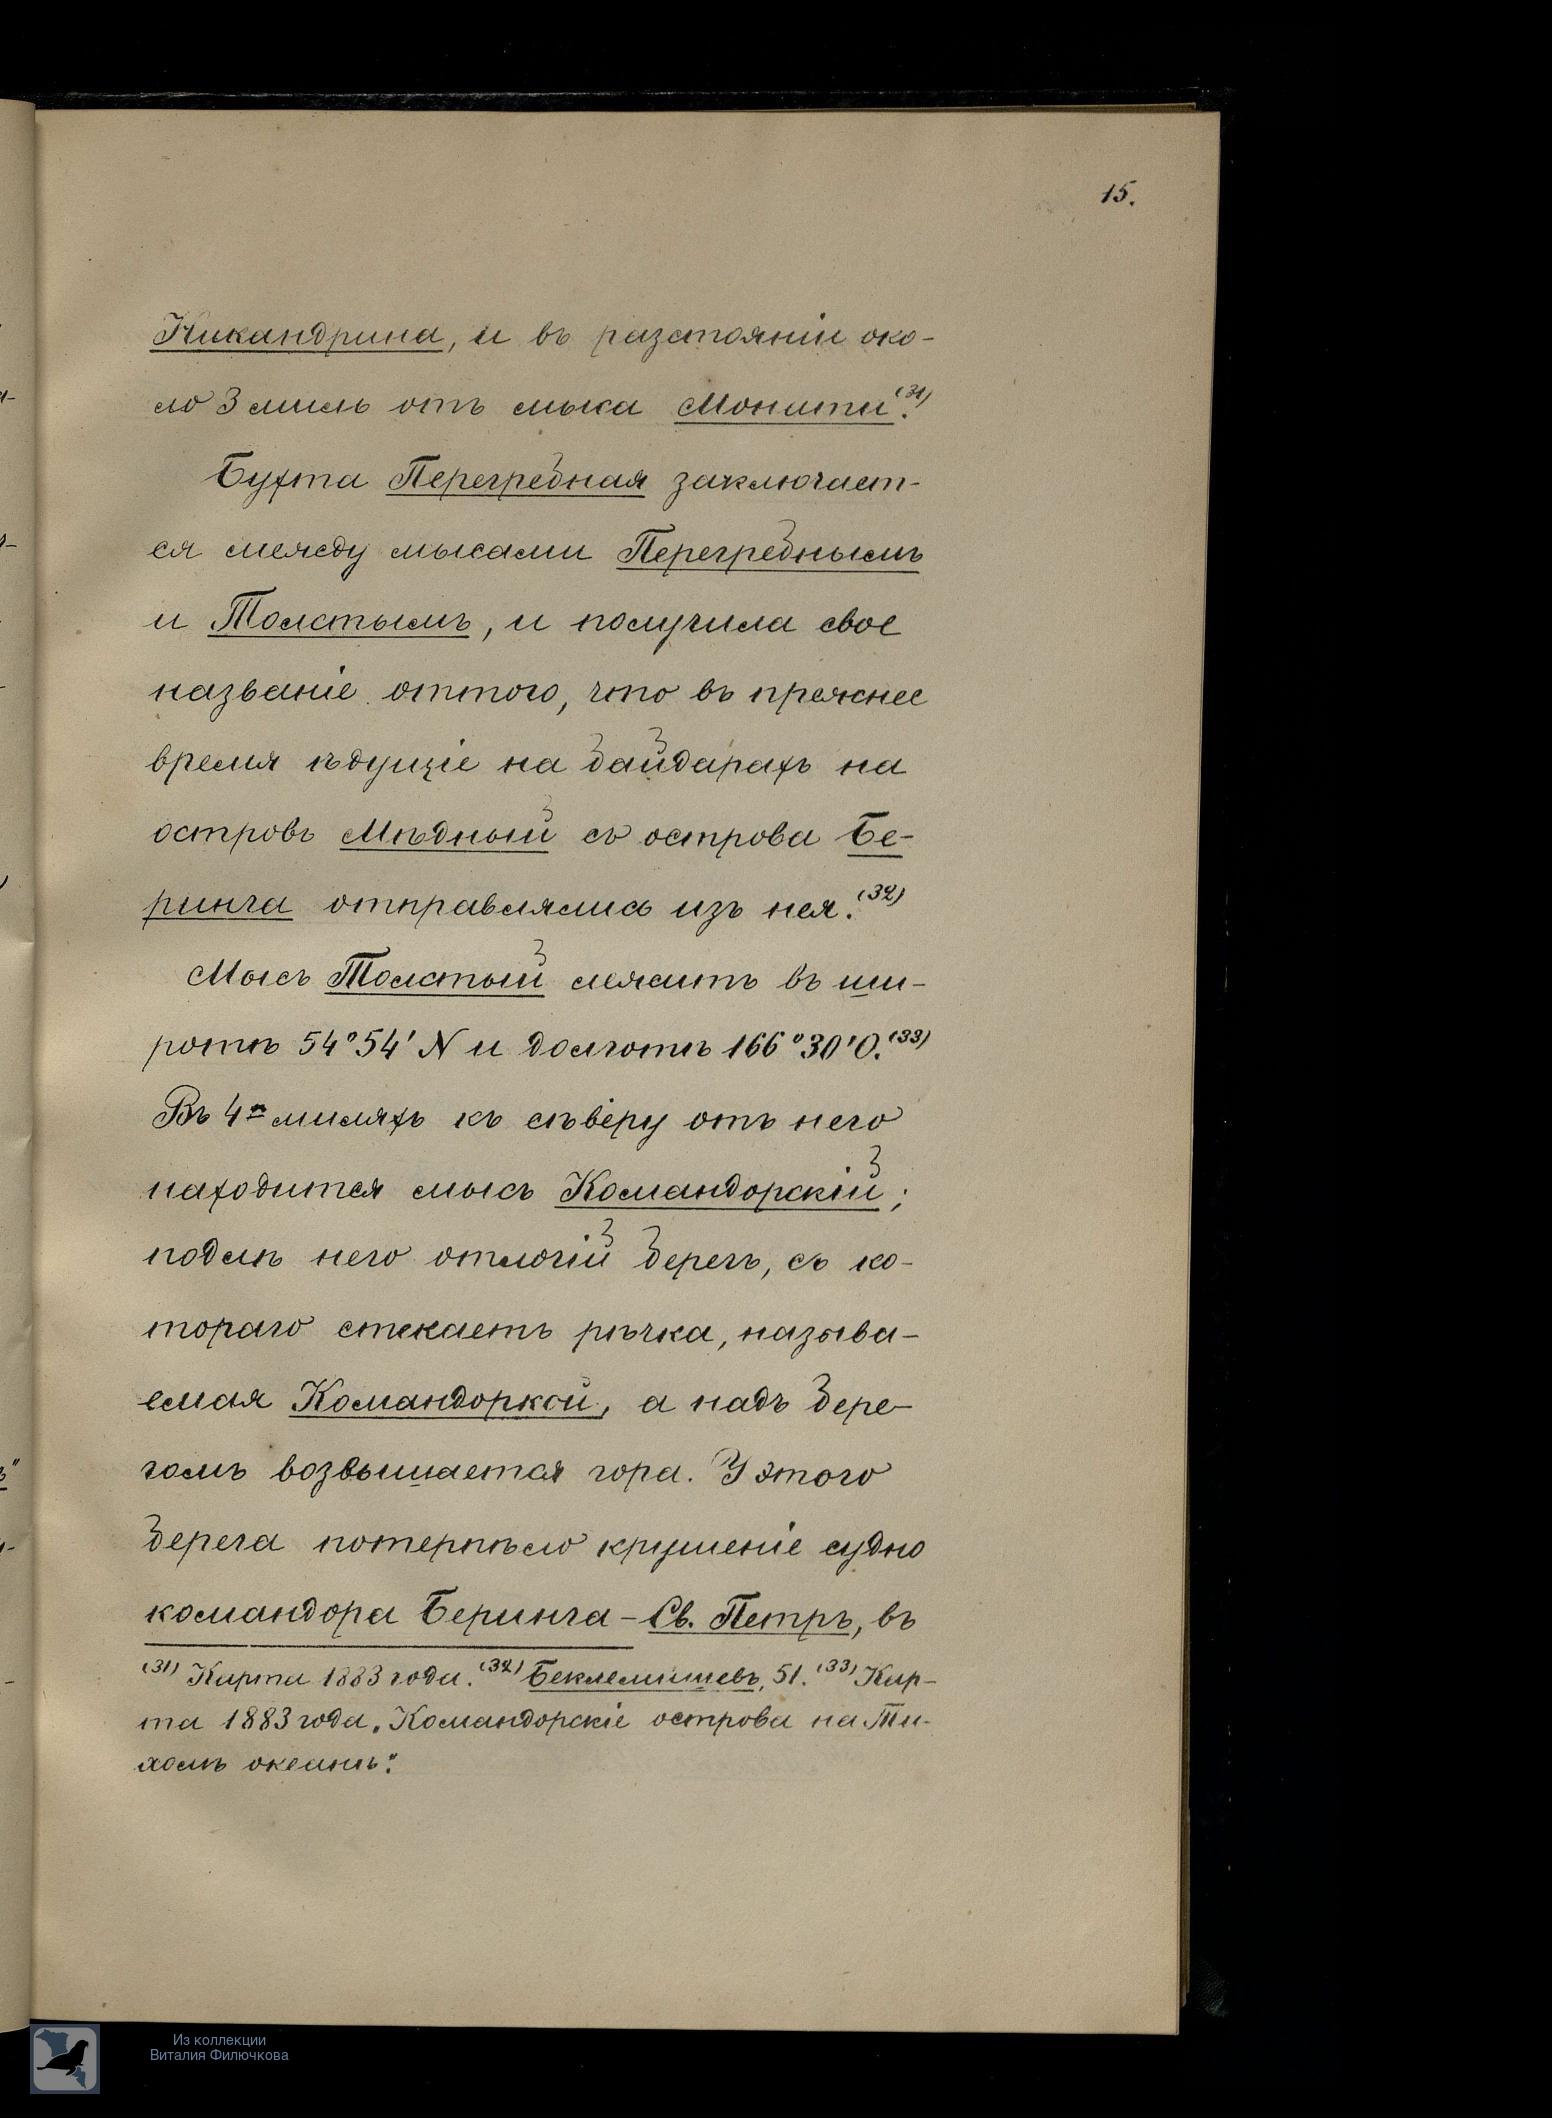 15.
Никандрина, и въ разстояніи око-
ло 3 миль отъ мыса Монати.(31)
Бухта Перегребная заключает-
ся между мысами Перегребнымъ
и Толстымъ, и получила свое
названіе оттого, что въ прежнее
время ѣдущіе на байдарахъ на
островъ Мѣдный съ острова Бе-
ринга отправлялись изъ нея.(32)
Мысъ Толстый лежитъ въ ши-
ротѣ 54°54' N и долготѣ 166°30'O.(33)
Въ 4х миляхъ къ сѣверу отъ него
находится мысъ Командорскій;
подлѣ него отлогій берегъ, съ ко-
тораго стекаетъ рѣчка, называ-
емая Командоркой, а надъ бере-
гомъ возвышается гора. У этого
берега потерпѣло крушеніе судно
командора Беринга – Св. Петръ, въ
(31) Карта 1883 года. (32) Беклемишевъ, 51. (33) Кар-
та 1883 года „Командорскіе острова на Ти-
хомъ океанѣ."
Из коллекции
Виталия Филючкова